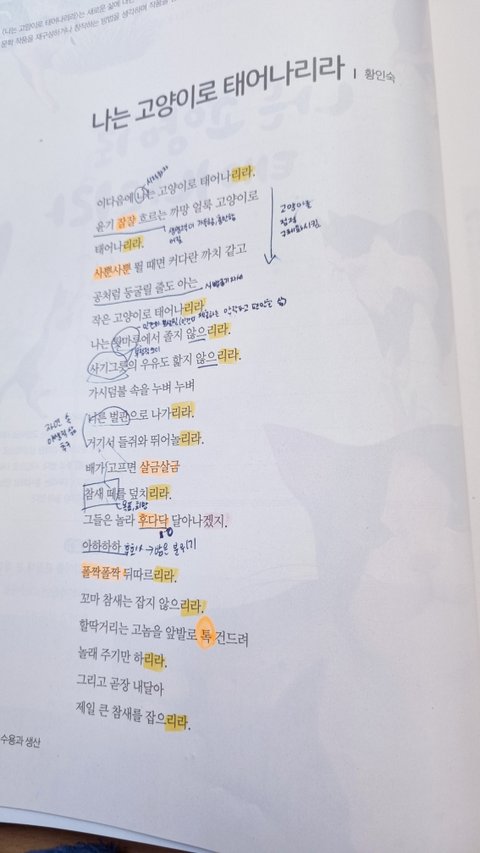 〈나는 고양이로 태어나리라〉는 새로운 삶에 대한
문학 작품을 재구성하거나 창작하는 방법을 생각하며 작품을
나는 고양이로 태어나리라 | 황인숙
이다음에 나는 고양이로 태어나리라.
윤기 잘잘 흐르는 까망 얼룩 고양이로
태어나리라.
사뿐사뿐 뛸 때면 커다란 까치 같고
공처럼 둥굴릴 줄도 아는
작은 고양이로 태어나리라.
나는 툇마루에서 졸지 않으리라.
사기그릇의 우유도 핥지 않으리라.
가시덤불 속을 누벼 누벼
너른 벌판으로 나가리라.
거기서 들쥐와 뛰어놀리라.
배가 고프면 살금살금
참새 떼를 덮치리라.
그들은 놀라 후다닥 달아나겠지.
아하하하
폴짝폴짝 뒤따르리라.
꼬마 참새는 잡지 않으리라.
할딱거리는 고놈을 앞발로 톡 건드려
놀래 주기만 하리라.
그리고 곧장 내달아
제일 큰 참새를 잡으리라.
고양이를
점점
구체화시킴
자연 속
목표, 희망
밝은 분위기
수용과 생산